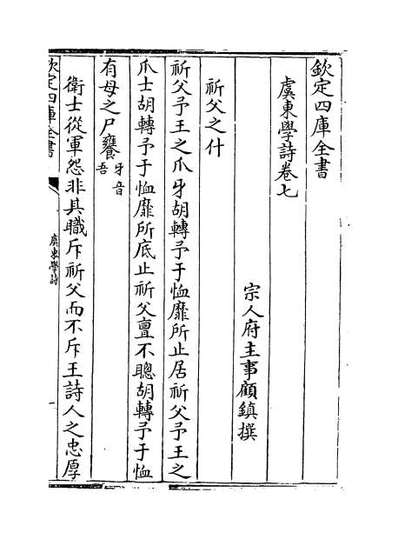 欽定四庫全書
虞東學詩卷七
宗人府主事顧鎮撰
祈父之什
祈父予王之爪牙胡轉予于恤靡所止居祈父予王之
爪士胡轉予于恤靡所厎止祈父亶不聰胡轉予于恤
有母之尸饔牙音吾
衛士從軍怨非其職斥祈父而不斥王詩人之忠厚
欽定四庫全書
虞東學詩
一